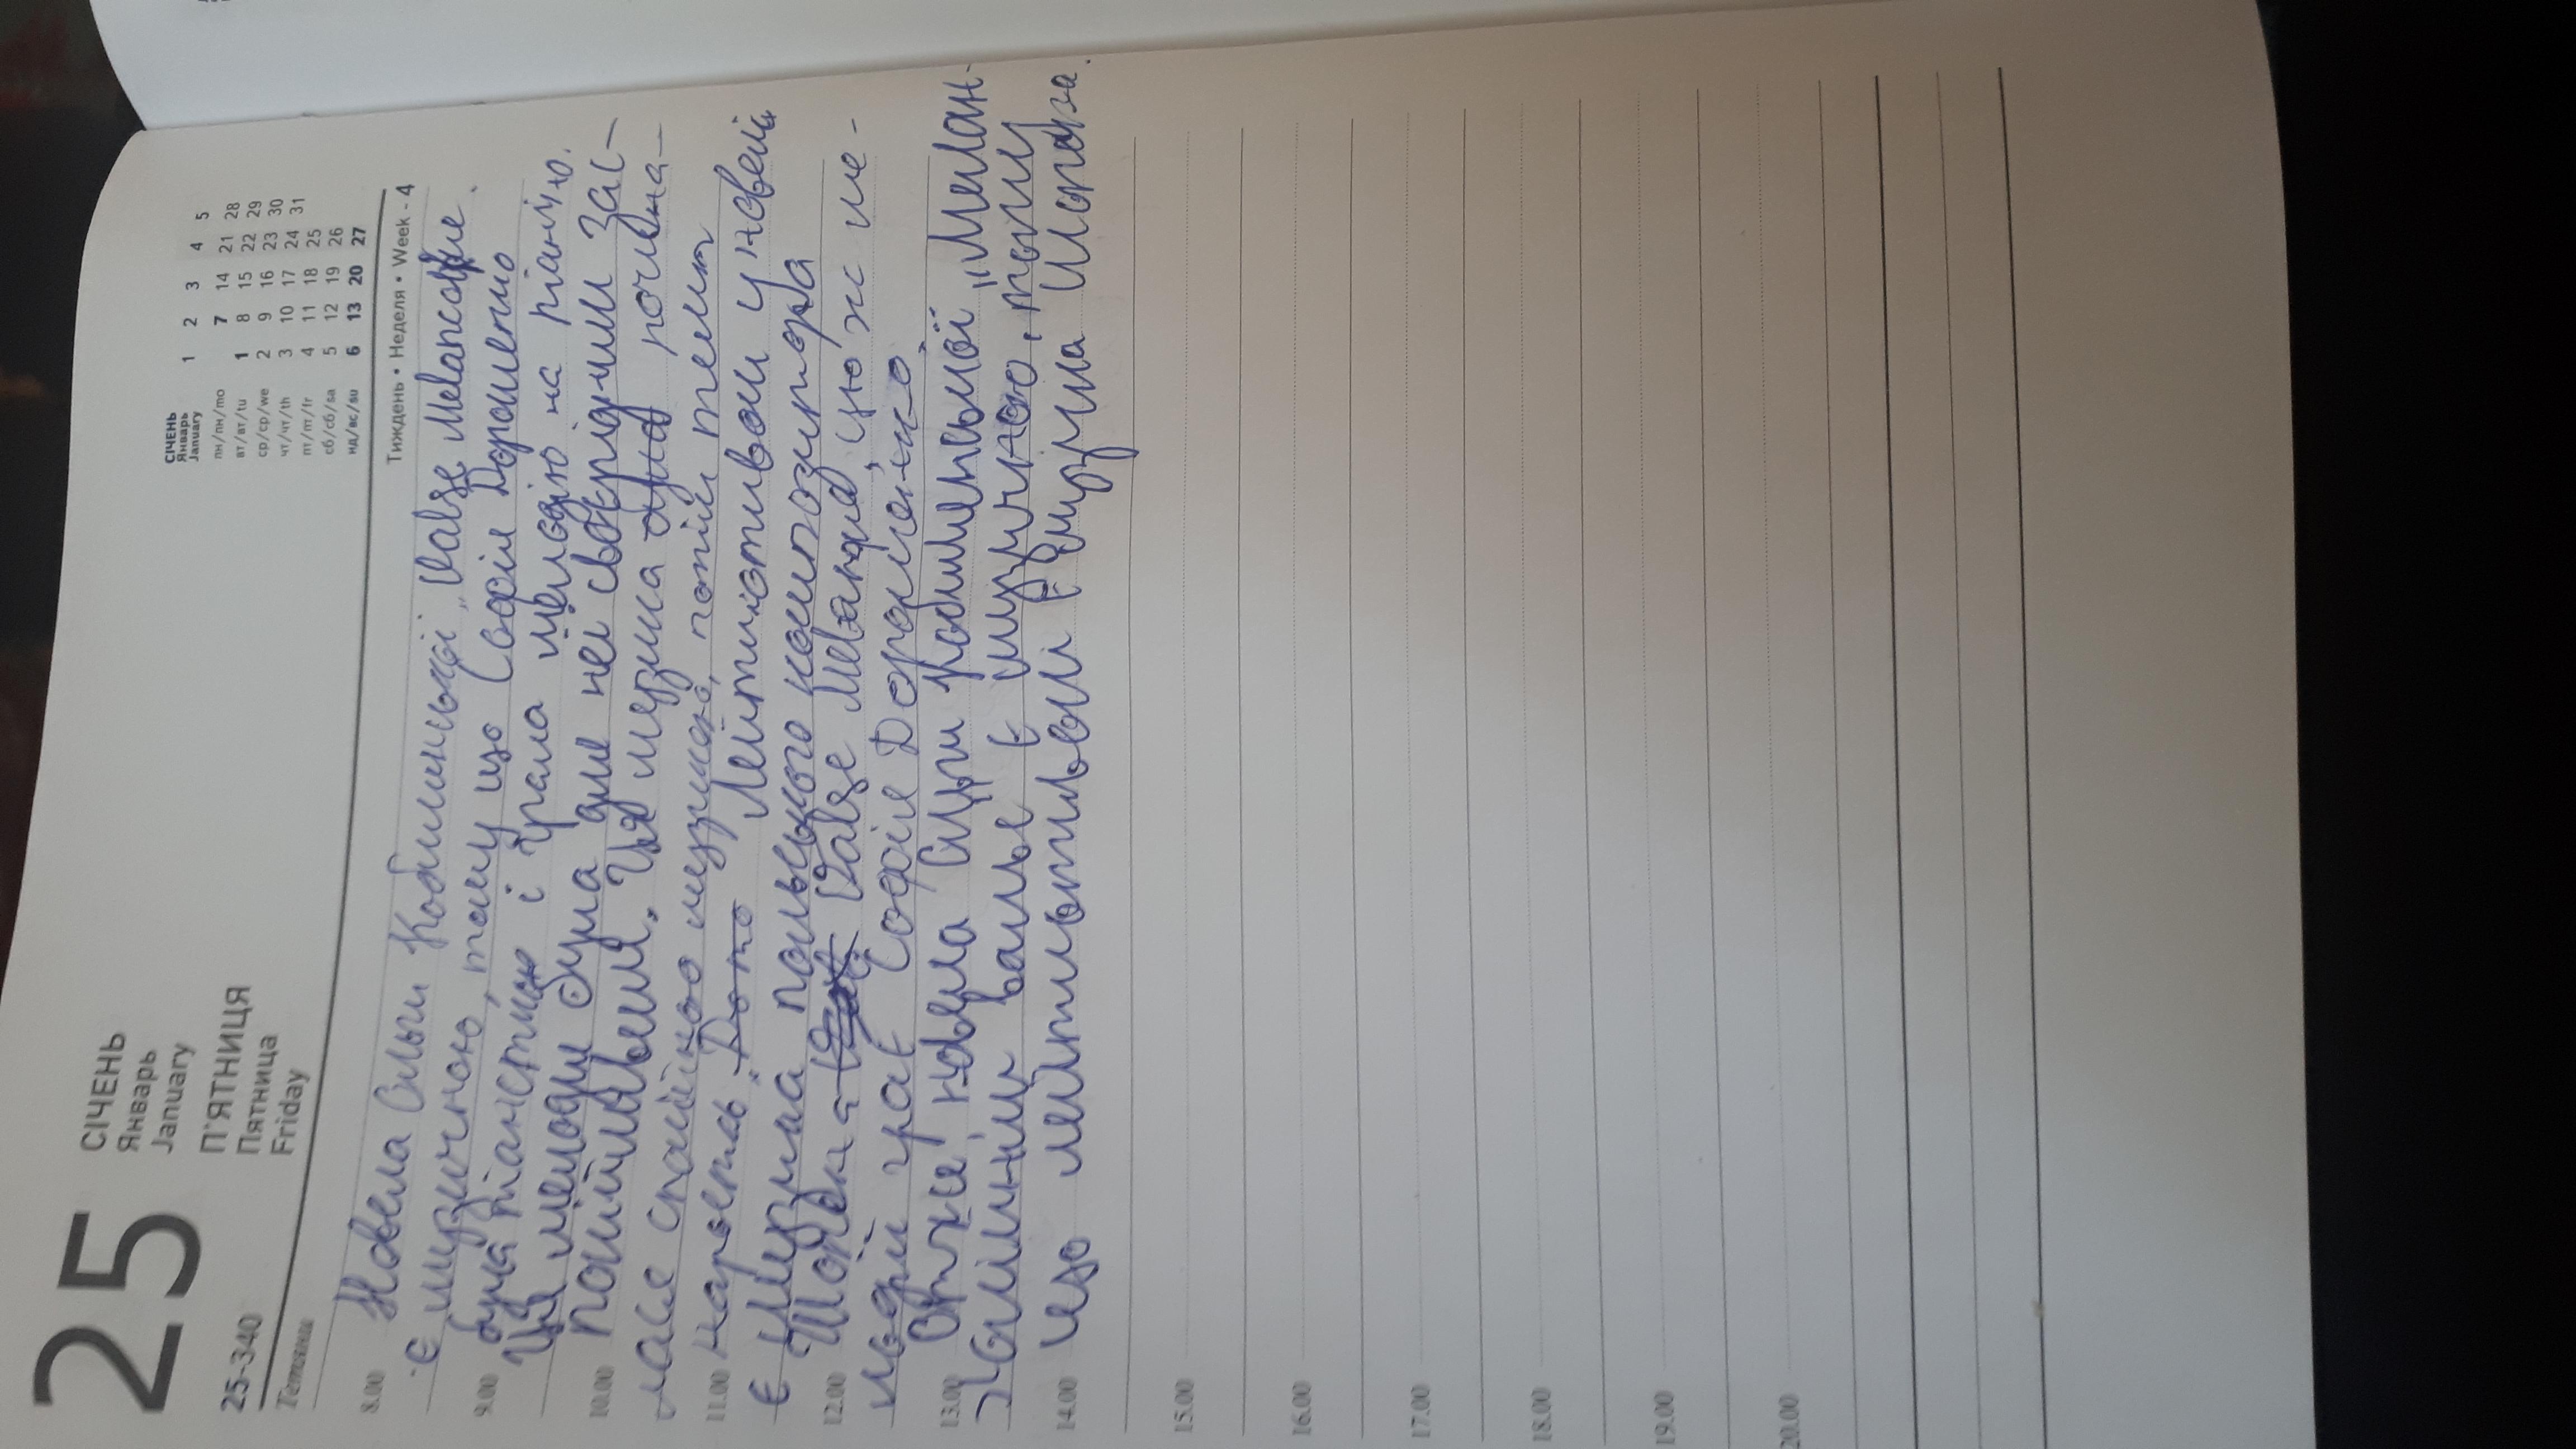 25
СІЧЕНЬ
Январь
January
П'ЯТНИЦЯ
Пятница
Friday
25-340
СІЧЕНЬ
Январь
January
1 2 3 4 5
пн/пн/mo 7 14 21 28
вт/вт/tu 1 8 15 22 29
ср/ср/we 2 9 16 23 30
чт/чт/th 3 10 17 24 31
пт/пт/fr 4 11 18 25
сб/сб/sa 5 12 19 26
нд/вс/su 6 13 20 27
Тиждень • Неделя • Week - 4
8.00 Новела Ольги Кобилянської „Valse Melancolique.
є музичною, тому що Софія Дорошенко
9.00 була піаністкою і грала мелодію на піаніно.
Ця мелодія була для неї своєрідним зас-
10.00 покійливим. Ця музика почина-
лася спокійною музикою, потім темп
11.00 наростав. Лейтмотивом у новелі
є музика польського композитора
12.00 Шопена Valse цю ж ме-
лодію грає Софія Дорошенко.
13.00 Отже, новела Ольги Кобилянської „Мелан-
холійний вальс є музичною, тому
14.00 що лейтмотивом є музика Шопена.
15.00
16.00
17.00
18.00
19.00
20.00